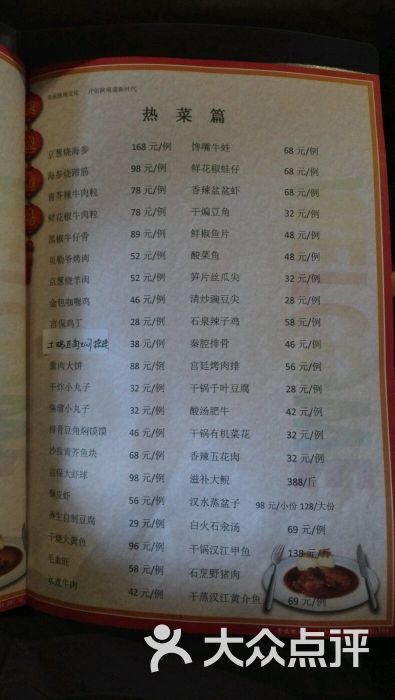 热菜篇
京葱烧海参 168 元/例
海参烧蹄筋 98 元/例
青芥辣牛肉粒 78 元/例
鲜花椒牛肉粒 78 元/例
黑椒牛仔骨 89 元/例
贝勒爷烤肉 52 元/例
京葱烧羊肉 52 元/例
金包咖喱鸡 46 元/例
宫保鸡丁 38 元/例
38 元/例
熏肉大饼 38 元/例
干炸小丸子 32 元/例
焦溜小丸子 32 元/例
排骨豆角焖馍馍 46 元/例
沙拉青芥鱼块 68 元/例
宫保大虾球 98 元/例
爆花虾 56 元/例
养生自制豆腐 29 元/例
干烧大黄鱼 96 元/例
毛血旺 58 元/例
水煮牛肉 42 元/例
馋嘴牛蛙 68 元/例
鲜花椒蛙仔 68 元/例
香辣盆盆虾 68 元/例
干煸豆角 32 元/例
鲜椒鱼片 48 元/例
酸菜鱼 48 元/例
笋片丝瓜尖 32 元/例
清炒豌豆尖 28 元/例
石泉辣子鸡 58 元/例
秦腔排骨 46 元/例
宫廷烤肉排 56 元/例
干锅千叶豆腐 28 元/例
酸汤肥牛 42 元/例
干锅有机菜花 32 元/例
香辣五花肉 32 元/例
滋补大鲵 388/斤
汉水蒸盆子 98 元/小份 128/大份
白火石汆汤 69 元/例
干锅汉江甲鱼 138 元/斤
石烹野猪肉 58 元/例
干蒸汉江黄介鱼 69 元/例
大众点评